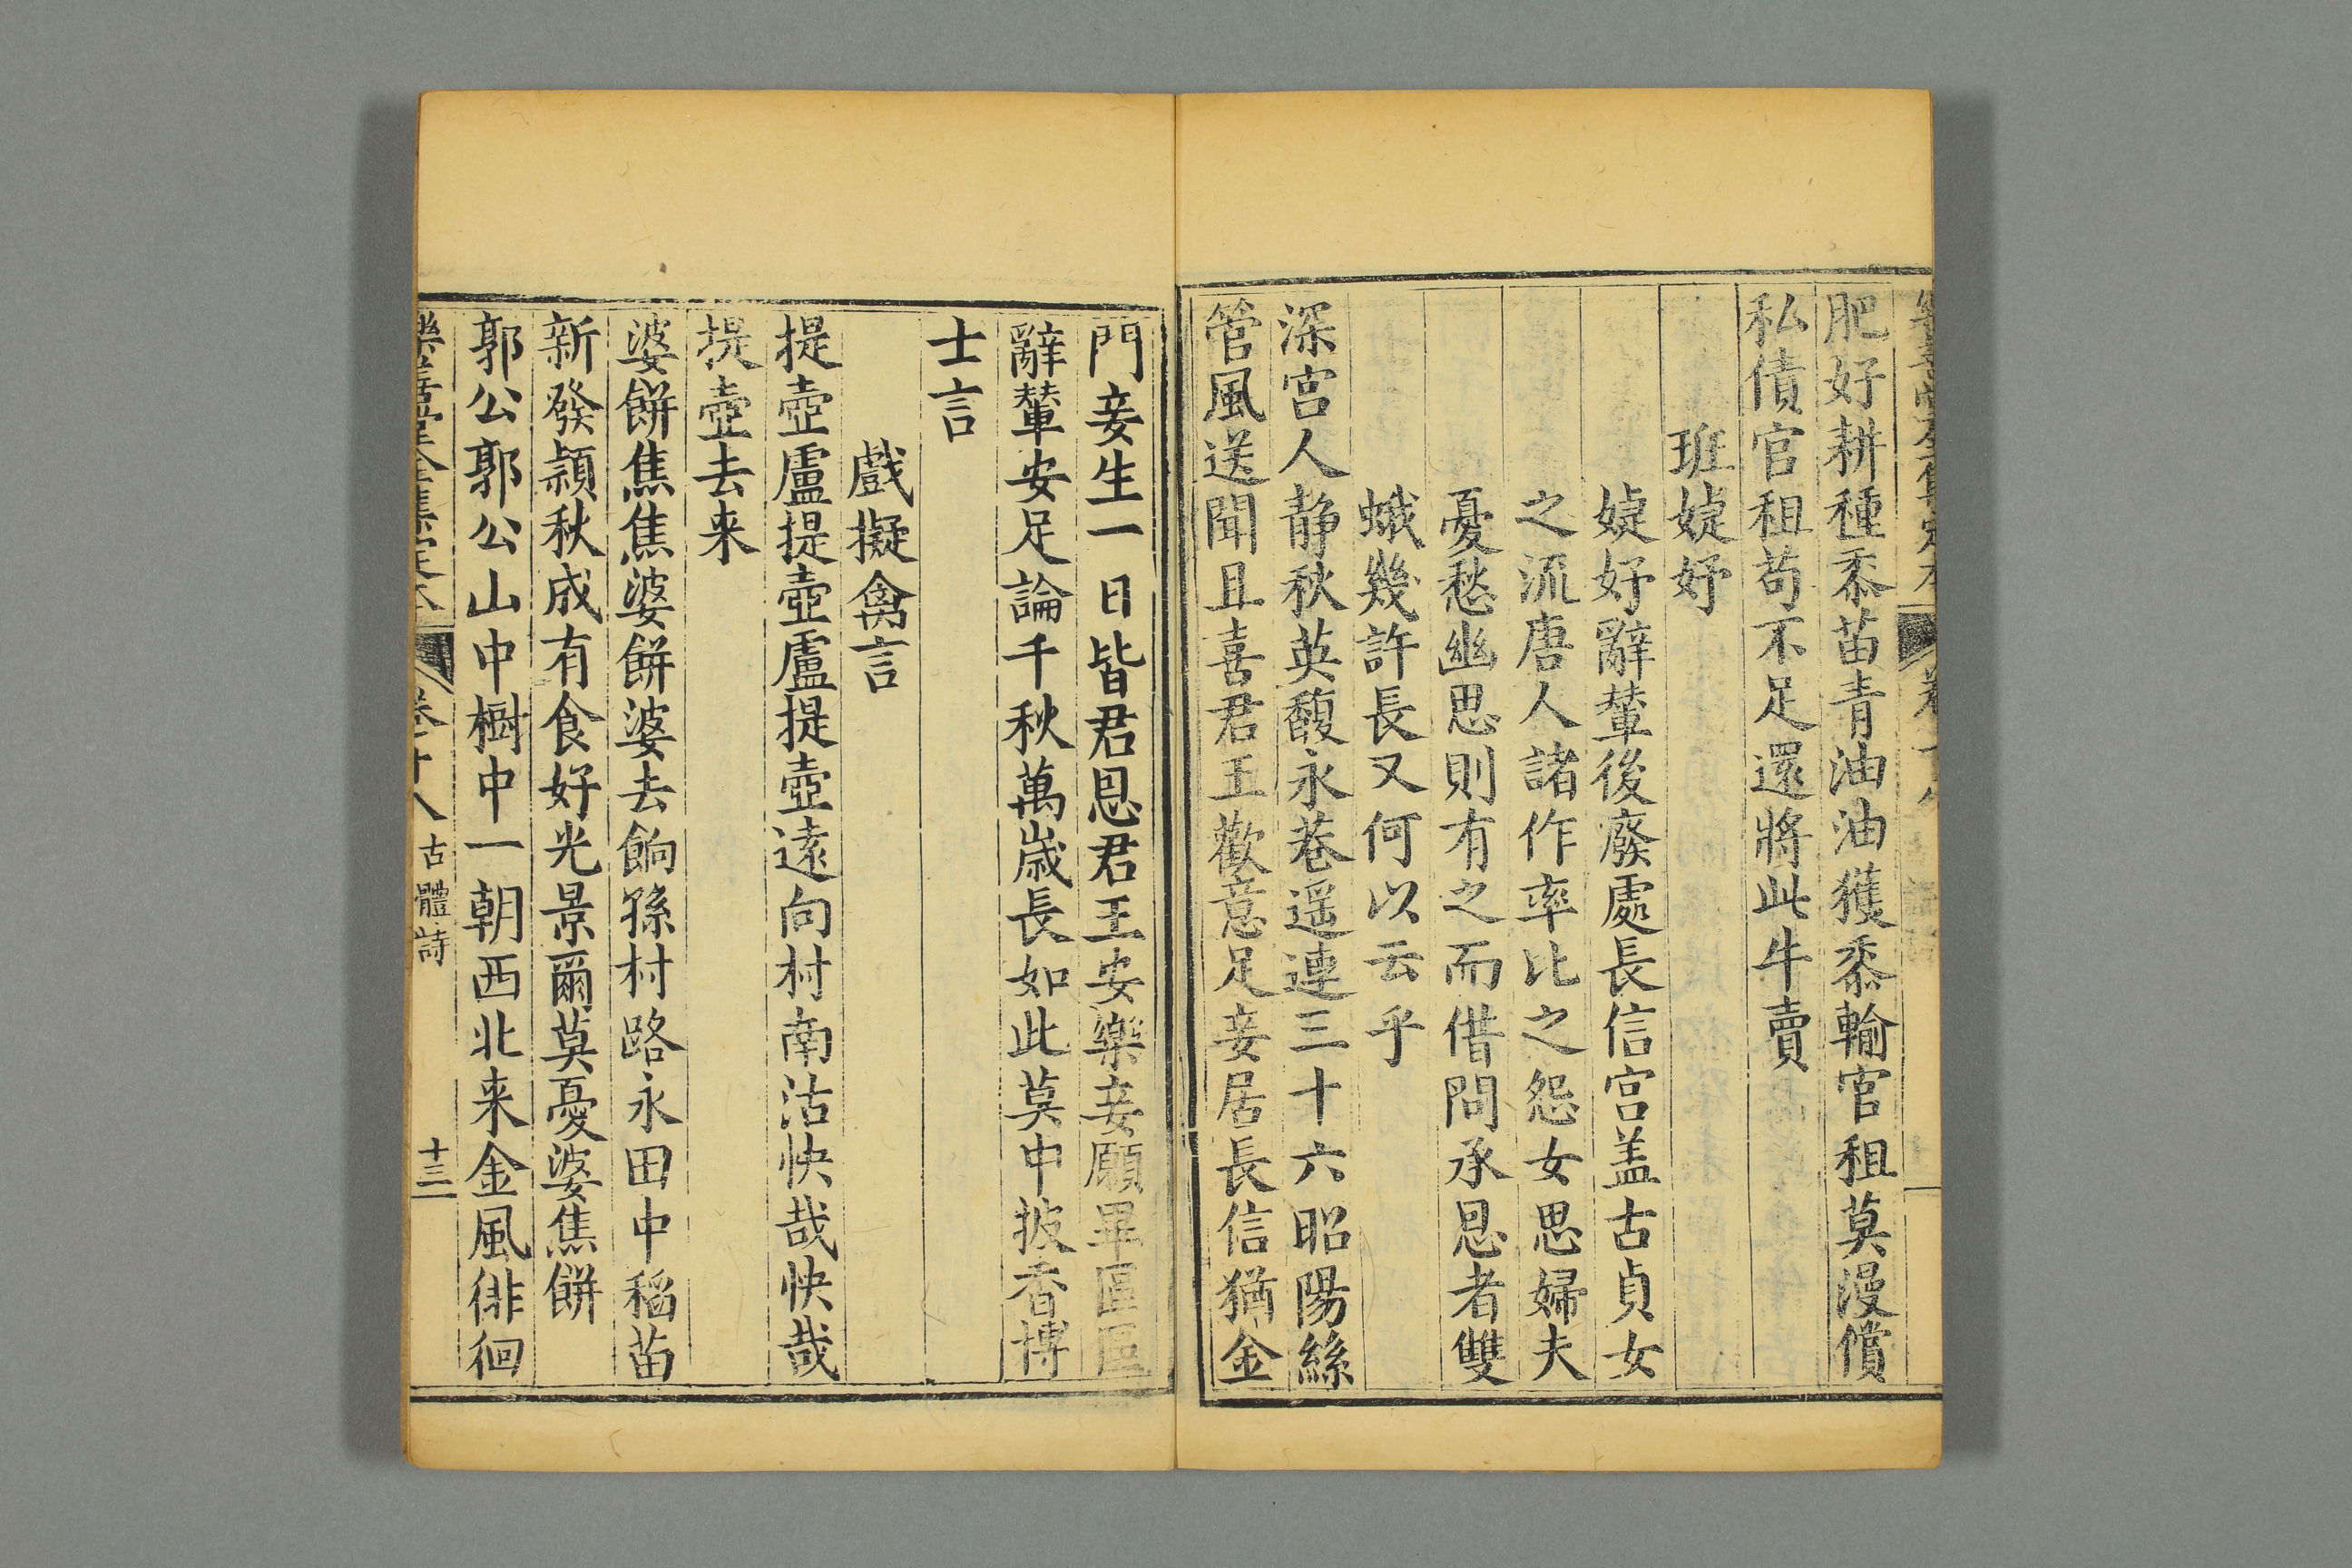 肥好耕種黍苗青油油獲黍輸官租莫漫償
私債官租苟不足還將此牛賣
班婕妤
婕妤辭輦後廢處長信宮盖古貞女
之流唐人諸作率比之怨女思婦夫
憂愁幽思則有之而借問承恩者雙
蛾幾許長又何以云乎
深宮人静秋英馥永巷遥連三十六昭陽絲
管風送聞且喜君王歡意足妾居長信猶金
門妾生一日皆君恩君王安樂妾願畢區區
辭輦安足論千秋萬歲長如此莫中披香博
士言
戲擬禽言
提壺盧提壺盧提壺遠向村南沽快哉快哉
提壺去来
婆餅焦焦婆餅婆去餉孫村路永田中稻苗
新發頴秋成有食好光景爾莫憂婆焦餅
郭公郭公山中樹中一朝西北来金風徘徊
樂善堂全集定本 卷十八 古體詩 十三